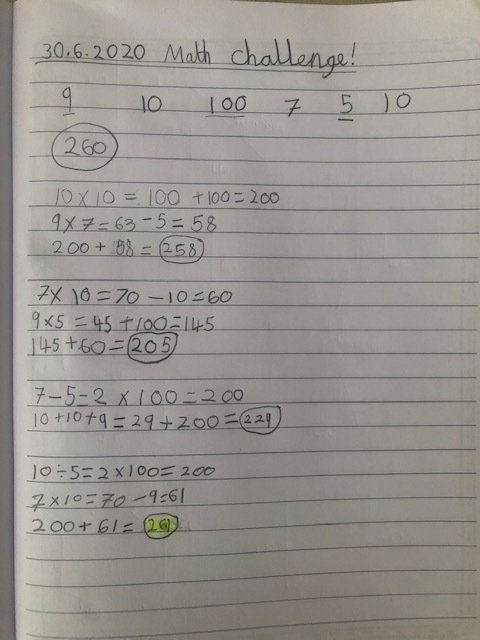 30.6.2020 Math challenge!
9 10 100 7 5 10
260
10 × 10 = 100 + 100 = 200
9 × 7 = 63 - 5 = 58
200 + 58 = 258
7 × 10 = 70 - 10 = 60
9 × 5 = 45 + 100 = 145
145 + 60 = 205
7 - 5 = 2 × 100 = 200
10 + 10 + 9 = 29 + 200 = 229
10 ÷ 5 = 2 × 100 = 200
7 × 10 = 70 - 9 = 61
200 + 61 = 261